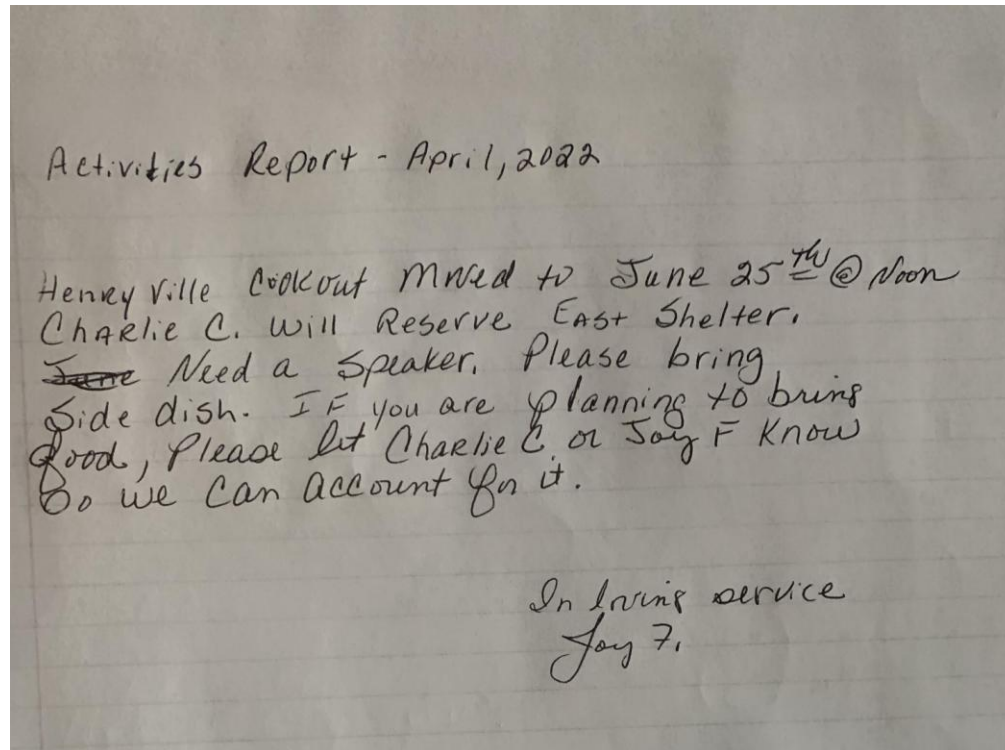 Activities Report - April, 2022
Henry Ville Cookout Moved to June 25th @ Noon
Charlie C. Will Reserve East Shelter.
June Need a Speaker. Please bring
Side dish. IF you are planning to bring
food, Please let Charlie C. or Joy F Know
So we can account for it.
In loving service
Joy F.